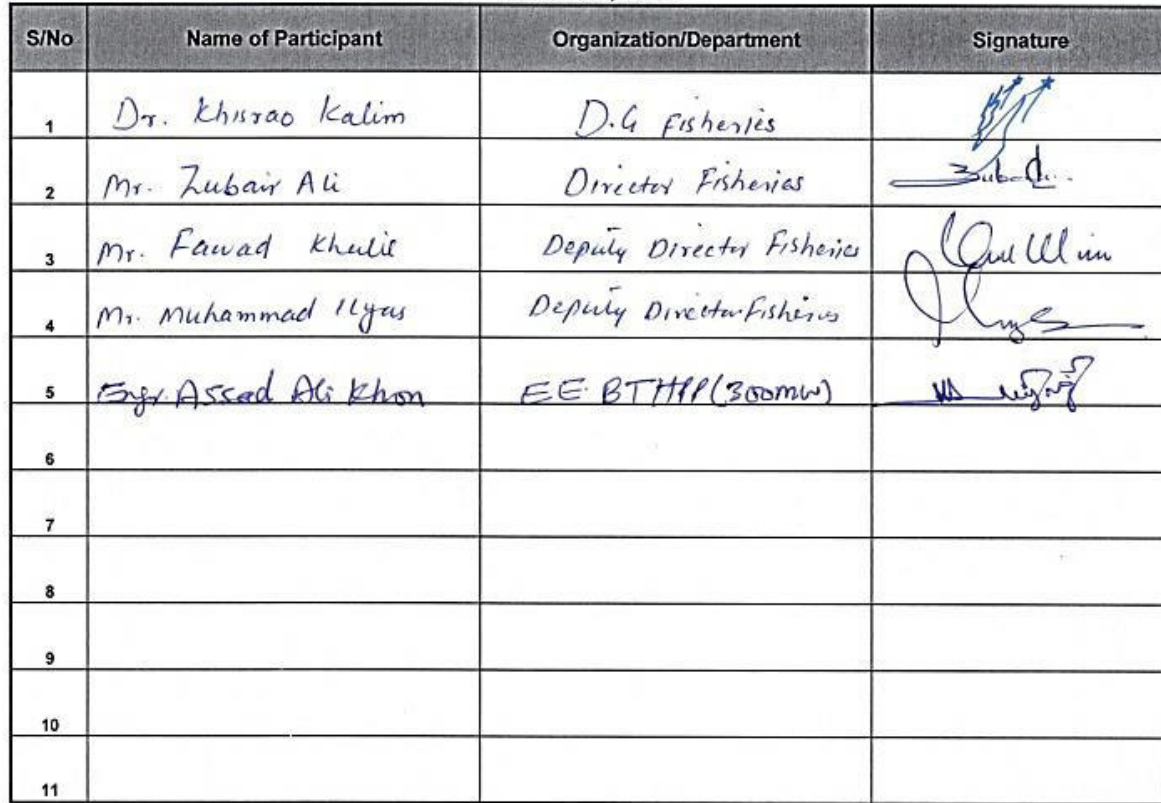 S/No Name of Participant Organization/Department Signature
1 Dr. Khisrao Kalim D.G Fisheries
2 Mr. Zubair Ali Director Fisheries
3 Mr. Fawad Khalil Deputy Director Fisheries
4 Mr. Muhammad Ilyas Deputy Director Fisheries
5 Engr. Assad Ali Khan EE BTHPP (300MW)
6
7
8
9
10
11